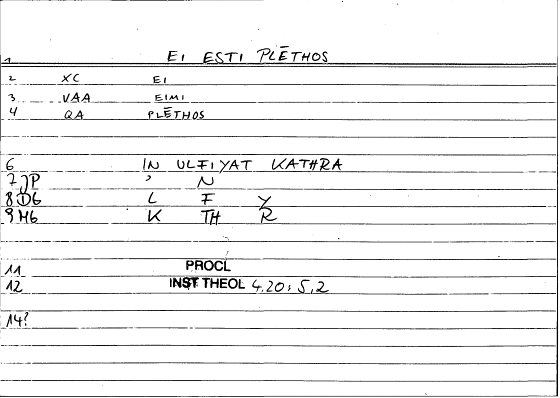 1 EI ESTI PLĒTHOS
2 XC EI
3 VAA EIMI
4 QA PLĒTHOS
6 IN ULFIYAT KATHRA
7 JP ʾ N
8 D6 L F Y
9 H6 K TH R
11 PROCL
12 INST THEOL 4.20; 5,2
14?